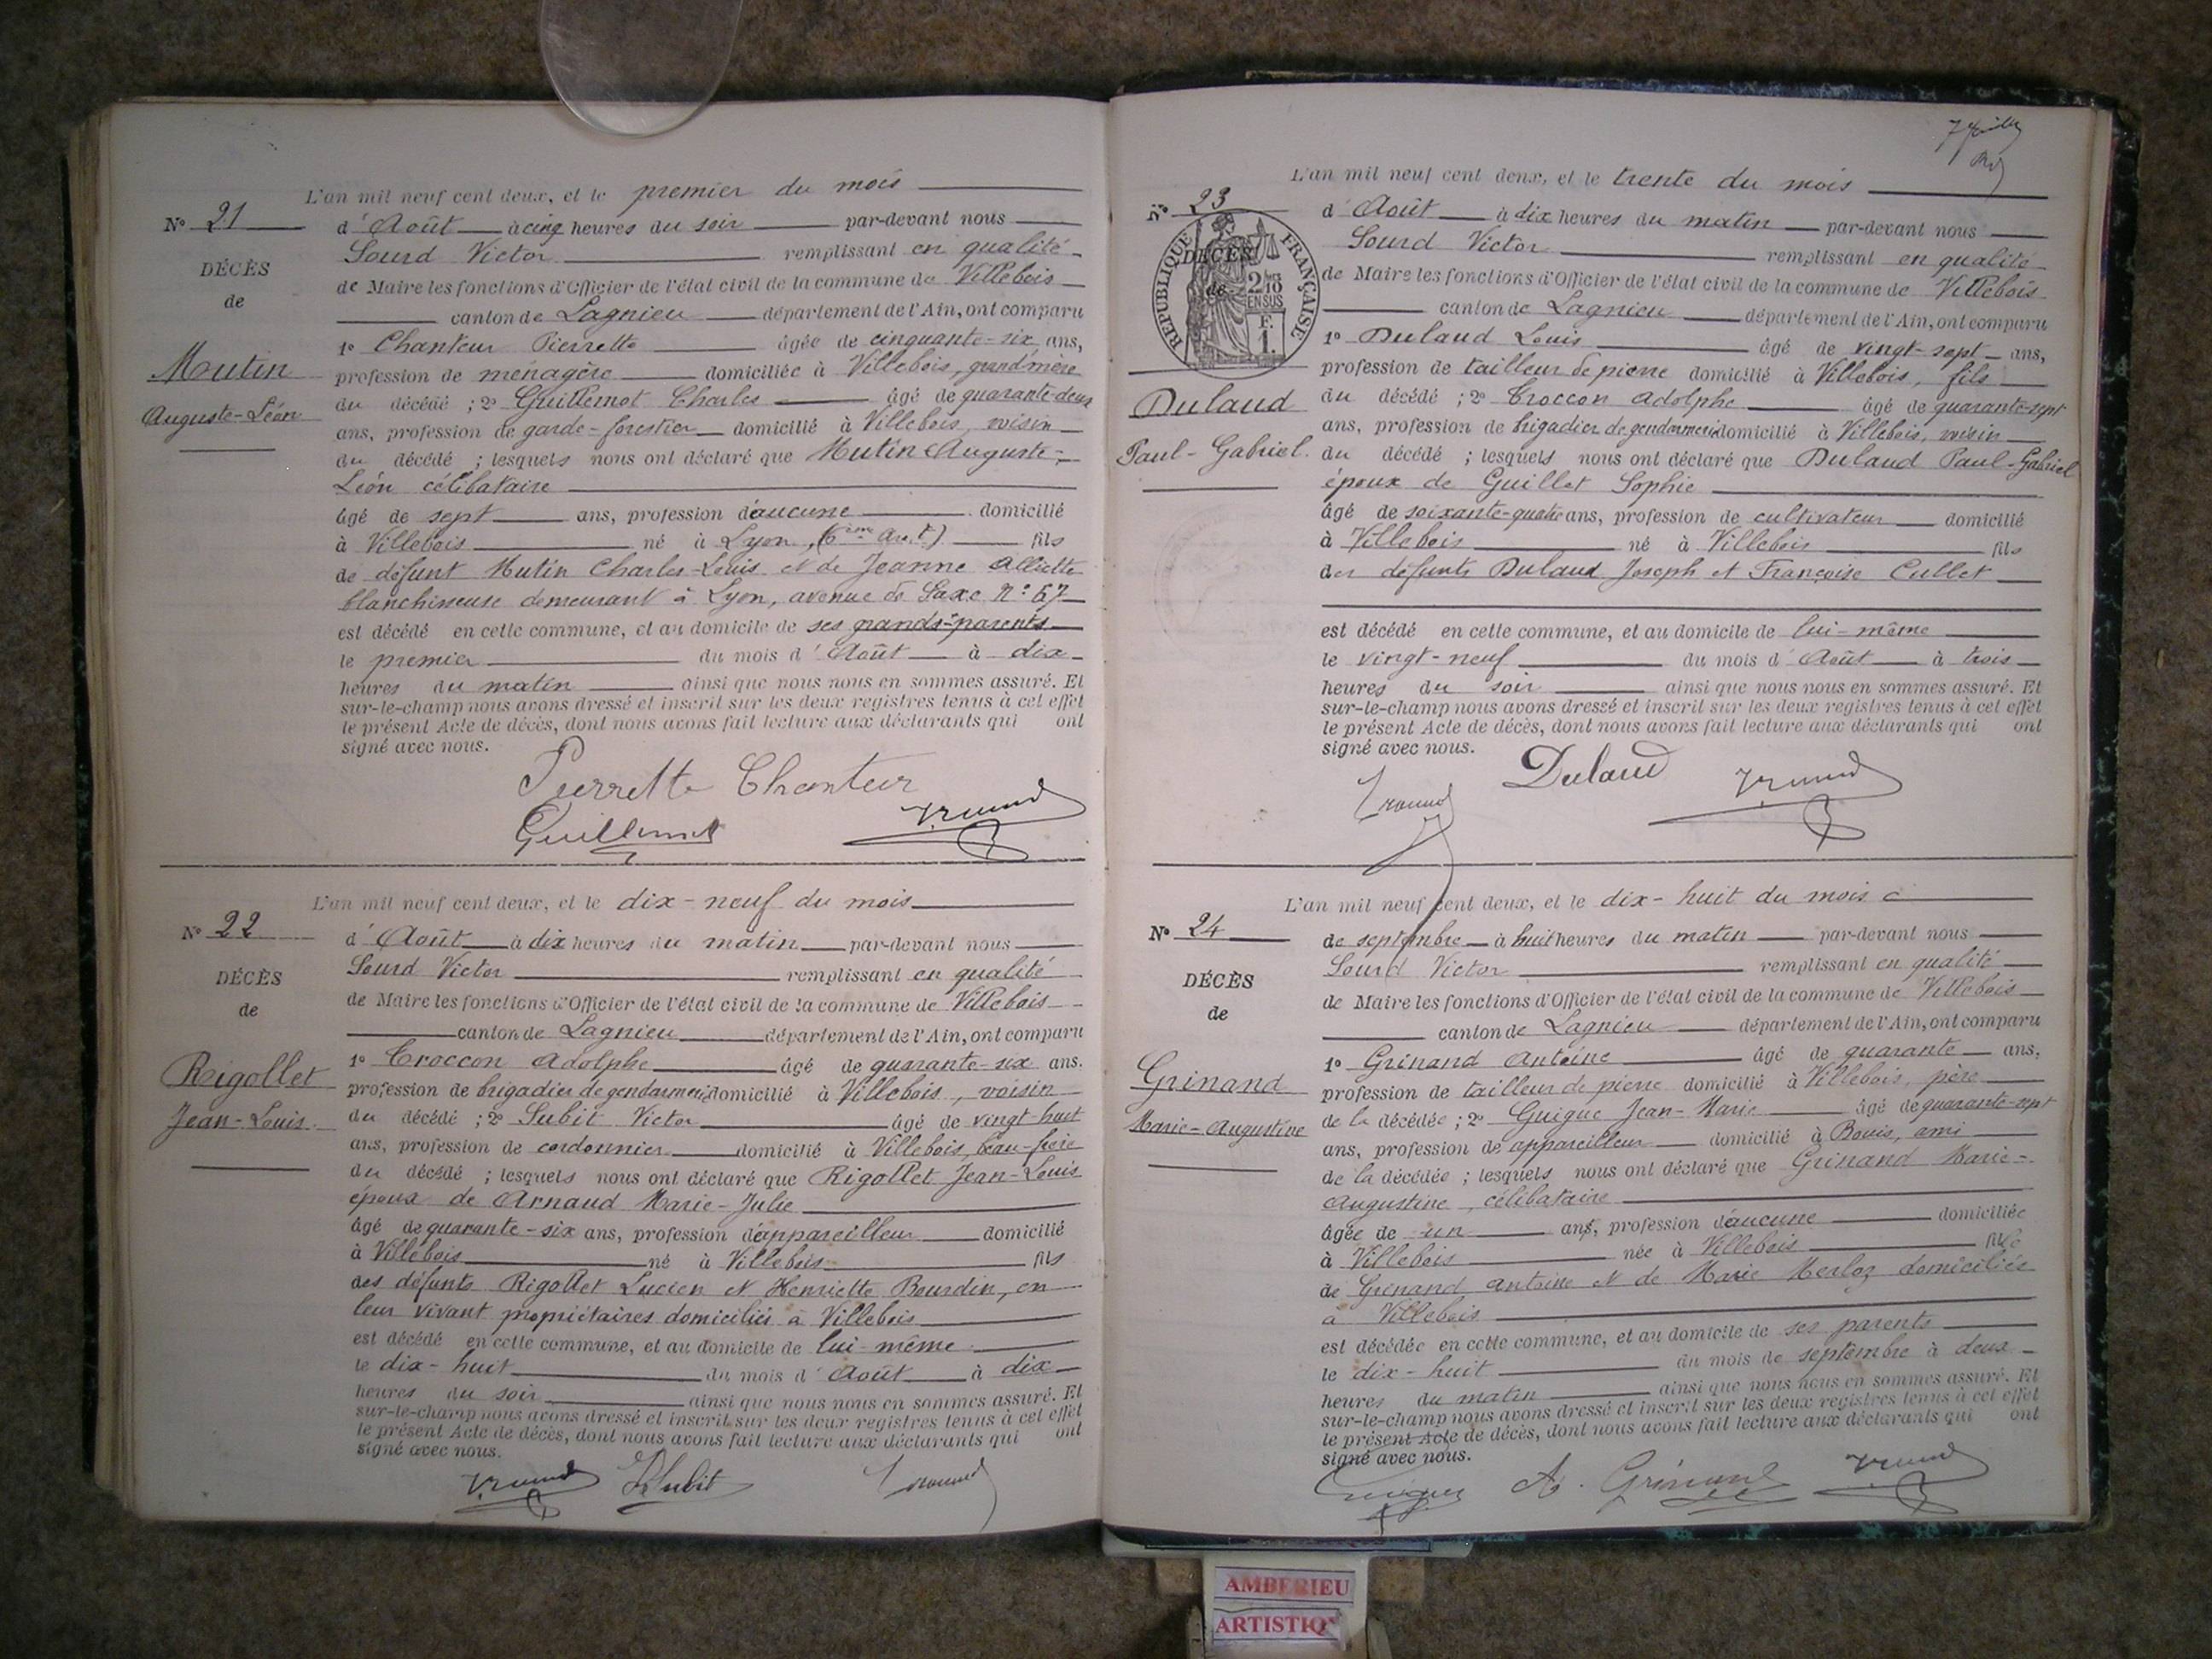 L'an mil neuf cent deux, et le premier du mois
N° 21
d'Août à cinq heures du soir par-devant nous
Sourd Victor remplissant en qualité
DÉCÈS
de Maire les fonctions d'Officier de l'état civil de la commune de Villebois
de
canton de Lagnieu département de l'Ain, ont comparu
1° Chanteur Pierrette âgée de cinquante-six ans,
Mutin
profession de ménagère domiciliée à Villebois, grand'mère
Auguste-Léon
du décédé ; 2° Guillemot Charles âgé de quarante-deux
ans, profession de garde-forestier domicilié à Villebois, voisin
du décédé ; lesquels nous ont déclaré que Mutin Auguste-
Léon célibataire
âgé de sept ans, profession d'aucune domicilié
à Villebois né à Lyon, (6ème arr.t) fils
de défunt Mutin Charles-Louis et de Jeanne Alliette
blanchisseuse demeurant à Lyon, avenue de Saxe N° 67
est décédé en cette commune, et au domicile de ses grands-parents
le premier du mois d'Août à dix
heures du matin ainsi que nous nous en sommes assuré. Et
sur-le-champ nous avons dressé et inscrit sur les deux registres tenus à cet effet
le présent Acte de décès, dont nous avons fait lecture aux déclarants qui ont
signé avec nous.
Pierrette Chanteur
Guillemot
L'an mil neuf cent deux, et le dix-neuf du mois
N° 22
d'Août à dix heures du matin par-devant nous
Sourd Victor remplissant en qualité
DÉCÈS
de Maire les fonctions d'Officier de l'état civil de la commune de Villebois
de
canton de Lagnieu département de l'Ain, ont comparu
1° Troccon Adolphe âgé de quarante-six ans.
Rigollet
profession de brigadier de gendarmerie domicilié à Villebois, voisin
Jean-Louis
du décédé ; 2° Subit Victor âgé de vingt huit
ans, profession de cordonnier domicilié à Villebois, beau-frère
du décédé ; lesquels nous ont déclaré que Rigollet Jean-Louis
époux de Arnaud Marie-Julie
âgé de quarante-six ans, profession d'appareilleur domicilié
à Villebois né à Villebois fils
des défunts Rigollet Lucien et Henriette Bourdin, en
leur vivant propriétaires domiciliés à Villebois
est décédé en cette commune, et au domicile de lui-même
le dix-huit du mois d'Août à dix
heures du soir ainsi que nous nous en sommes assuré. Et
sur-le-champ nous avons dressé et inscrit sur les deux registres tenus à cet effet
le présent Acte de décès, dont nous avons fait lecture aux déclarants qui ont
signé avec nous.
Subit
L'an mil neuf cent deux, et le trente du mois
N° 23
d'Août à dix heures du matin par-devant nous
Sourd Victor remplissant en qualité
RÉPUBLIQUE FRANÇAISE
2/10 EN SUS
F. 1.
DÉCÈS
de Maire les fonctions d'Officier de l'état civil de la commune de Villebois
de
canton de Lagnieu département de l'Ain, ont comparu
1° Dulaud Louis âgé de vingt-sept ans,
profession de tailleur de pierre domicilié à Villebois, fils
Dulaud
du décédé ; 2° Troccon Adolphe âgé de quarante-sept
ans, profession de brigadier de gendarmerie domicilié à Villebois, voisin
Paul-Gabriel.
du décédé ; lesquels nous ont déclaré que Dulaud Paul-Gabriel
époux de Guillet Sophie
âgé de soixante-quatre ans, profession de cultivateur domicilié
à Villebois né à Villebois fils
des défunts Dulaud Joseph et Françoise Cullet
est décédé en cette commune, et au domicile de lui-même
le vingt-neuf du mois d'Août à trois
heures du soir ainsi que nous nous en sommes assuré. Et
sur-le-champ nous avons dressé et inscrit sur les deux registres tenus à cet effet
le présent Acte de décès, dont nous avons fait lecture aux déclarants qui ont
signé avec nous.
Dulaud
L'an mil neuf cent deux, et le dix-huit du mois
N° 24
de septembre à huit heures du matin par-devant nous
Sourd Victor remplissant en qualité
DÉCÈS
de Maire les fonctions d'Officier de l'état civil de la commune de Villebois
de
canton de Lagnieu département de l'Ain, ont comparu
1° Grinand Antoine âgé de quarante ans,
Grinand
profession de tailleur de pierre domicilié à Villebois, père
Marie-Augustine
de la décédée ; 2° Guigue Jean-Marie âgé de quarante-sept
ans, profession de appareilleur domicilié à Bouis, ami
de la décédée ; lesquels nous ont déclaré que Grinand Marie-
Augustine, célibataire
âgée de un ans, profession d'aucune domiciliée
à Villebois née à Villebois fille
de Grinand Antoine et de Marie Merloz domiciliés
à Villebois
est décédée en cette commune, et au domicile de ses parents
le dix-huit du mois de septembre à deux
heures du matin ainsi que nous nous en sommes assuré. Et
sur-le-champ nous avons dressé et inscrit sur les deux registres tenus à cet effet
le présent Acte de décès, dont nous avons fait lecture aux déclarants qui ont
signé avec nous.
A. Grinand
AMBERIEU
ARTISTIQ